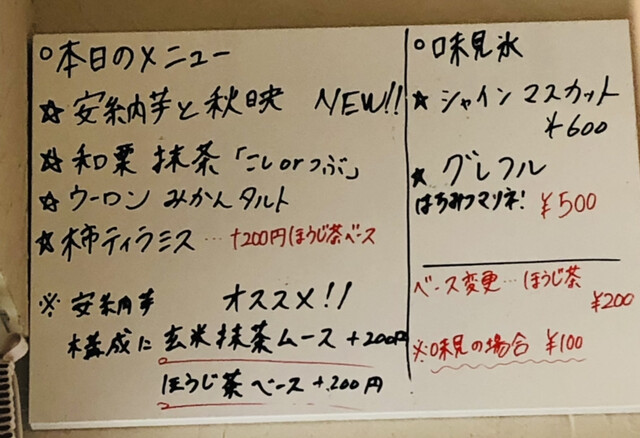 ○本日のメニュー
☆安納芋と秋映 NEW!!
☆和栗 抹茶「こしorつぶ」
☆ウーロン みかんタルト
☆柿ティラミス…+200円ほうじ茶ベース
※安納芋 オススメ!!
構成に玄米抹茶ムース+200円
ほうじ茶ベース+200円
○味見氷
★シャインマスカット
¥600
★グレフル
はちみつマリネ! ¥500
ベース変更…ほうじ茶
¥200
※味見の場合 ¥100